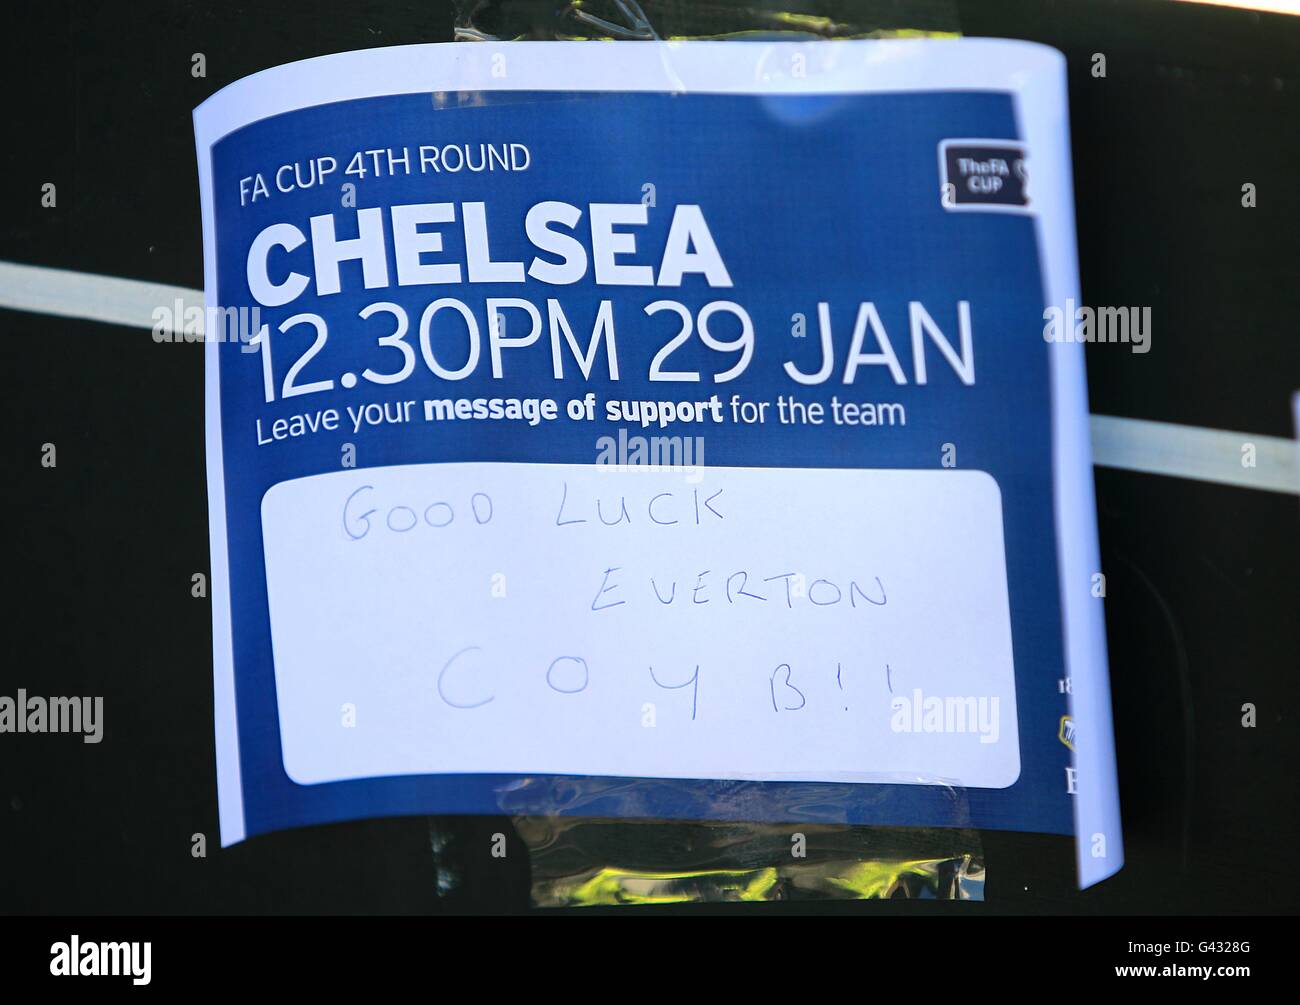 FA CUP 4TH ROUND
TheFA
CUP
CHELSEA
12.30PM 29 JAN
Leave your message of support for the team
GOOD LUCK
EVERTON
COYB!!
alamy
alamy
Image ID: G4328G
www.alamy.com